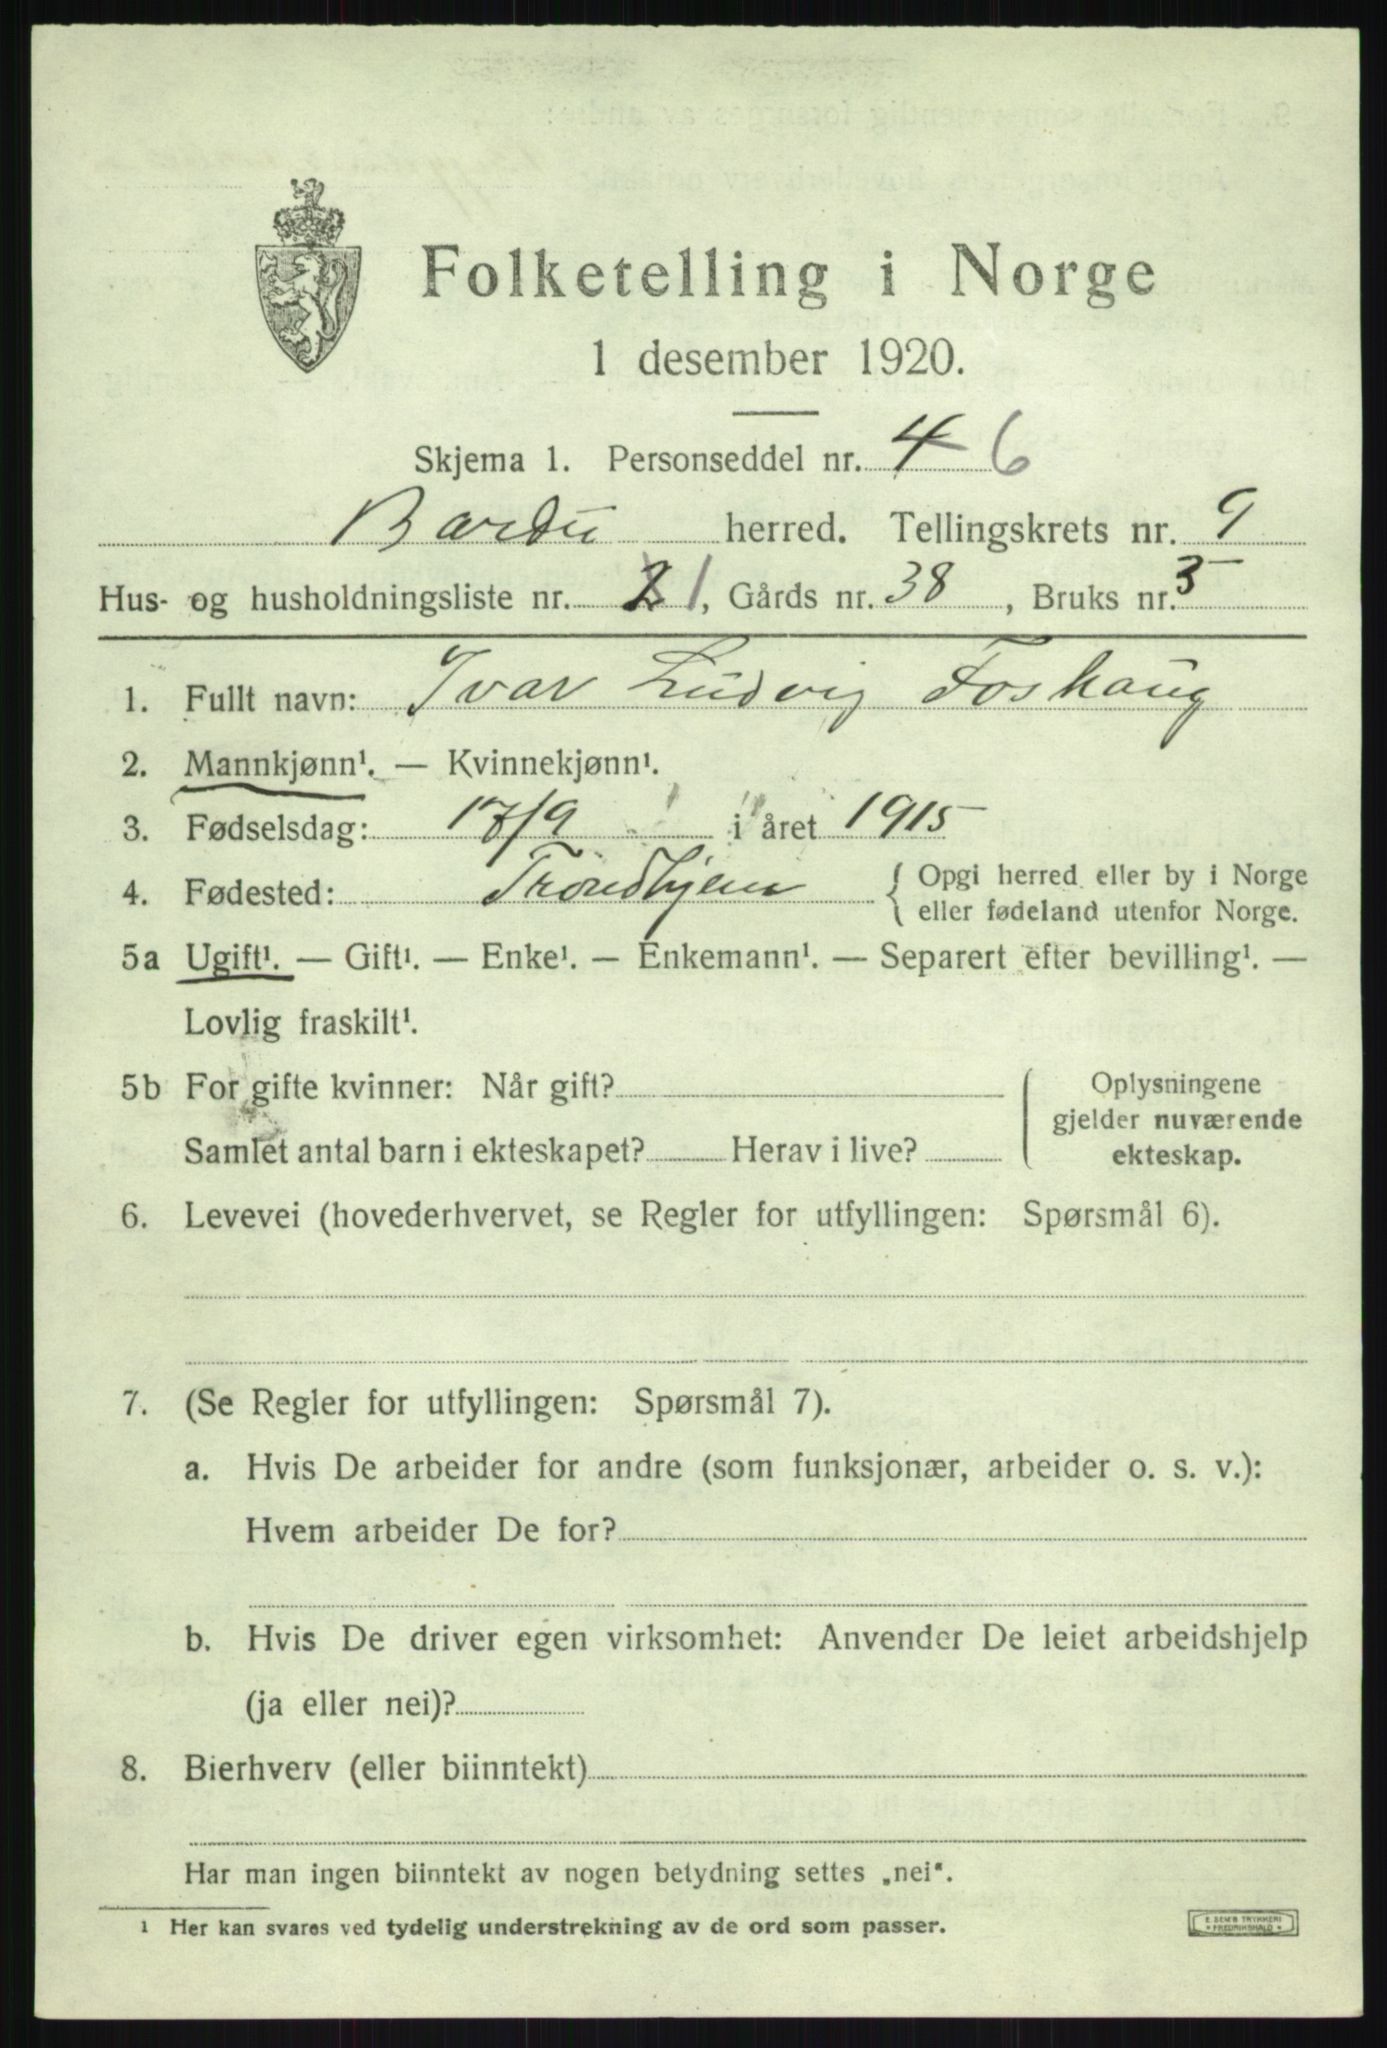 Folketelling i Norge
1 desember 1920.
Skjema 1. Personseddel nr. 4 6
Bardu herred. Tellingskrets nr. 9
Hus- og husholdningsliste nr. 2 1, Gårds nr. 38, Bruks nr. 5
1. Fullt navn: Ivar Ludvig Foshaug
2. Mannkjønn¹. — Kvinnekjønn¹.
3. Fødselsdag: 17/9 i året 1915
4. Fødested: Trondhjem { Opgi herred eller by i Norge
eller fødeland utenfor Norge.
5a Ugift¹. — Gift¹. — Enke¹. — Enkemann¹. — Separert efter bevilling¹. —
Lovlig fraskilt¹.
5b For gifte kvinner: Når gift? Oplysningene
gjelder nuværende
Samlet antal barn i ekteskapet? Herav i live? ekteskap.
6. Levevei (hovederhvervet, se Regler for utfyllingen: Spørsmål 6).
7. (Se Regler for utfyllingen: Spørsmål 7).
a. Hvis De arbeider for andre (som funksjonær, arbeider o. s. v.):
Hvem arbeider De for?
b. Hvis De driver egen virksomhet: Anvender De leiet arbeidshjelp
(ja eller nei)?
8. Bierhverv (eller biinntekt)
Har man ingen biinntekt av nogen betydning settes „nei“.
1 Her kan svares ved tydelig understrekning av de ord som passer.
E. SEM'S TRYKKERI
* FREDRIKSHALD *